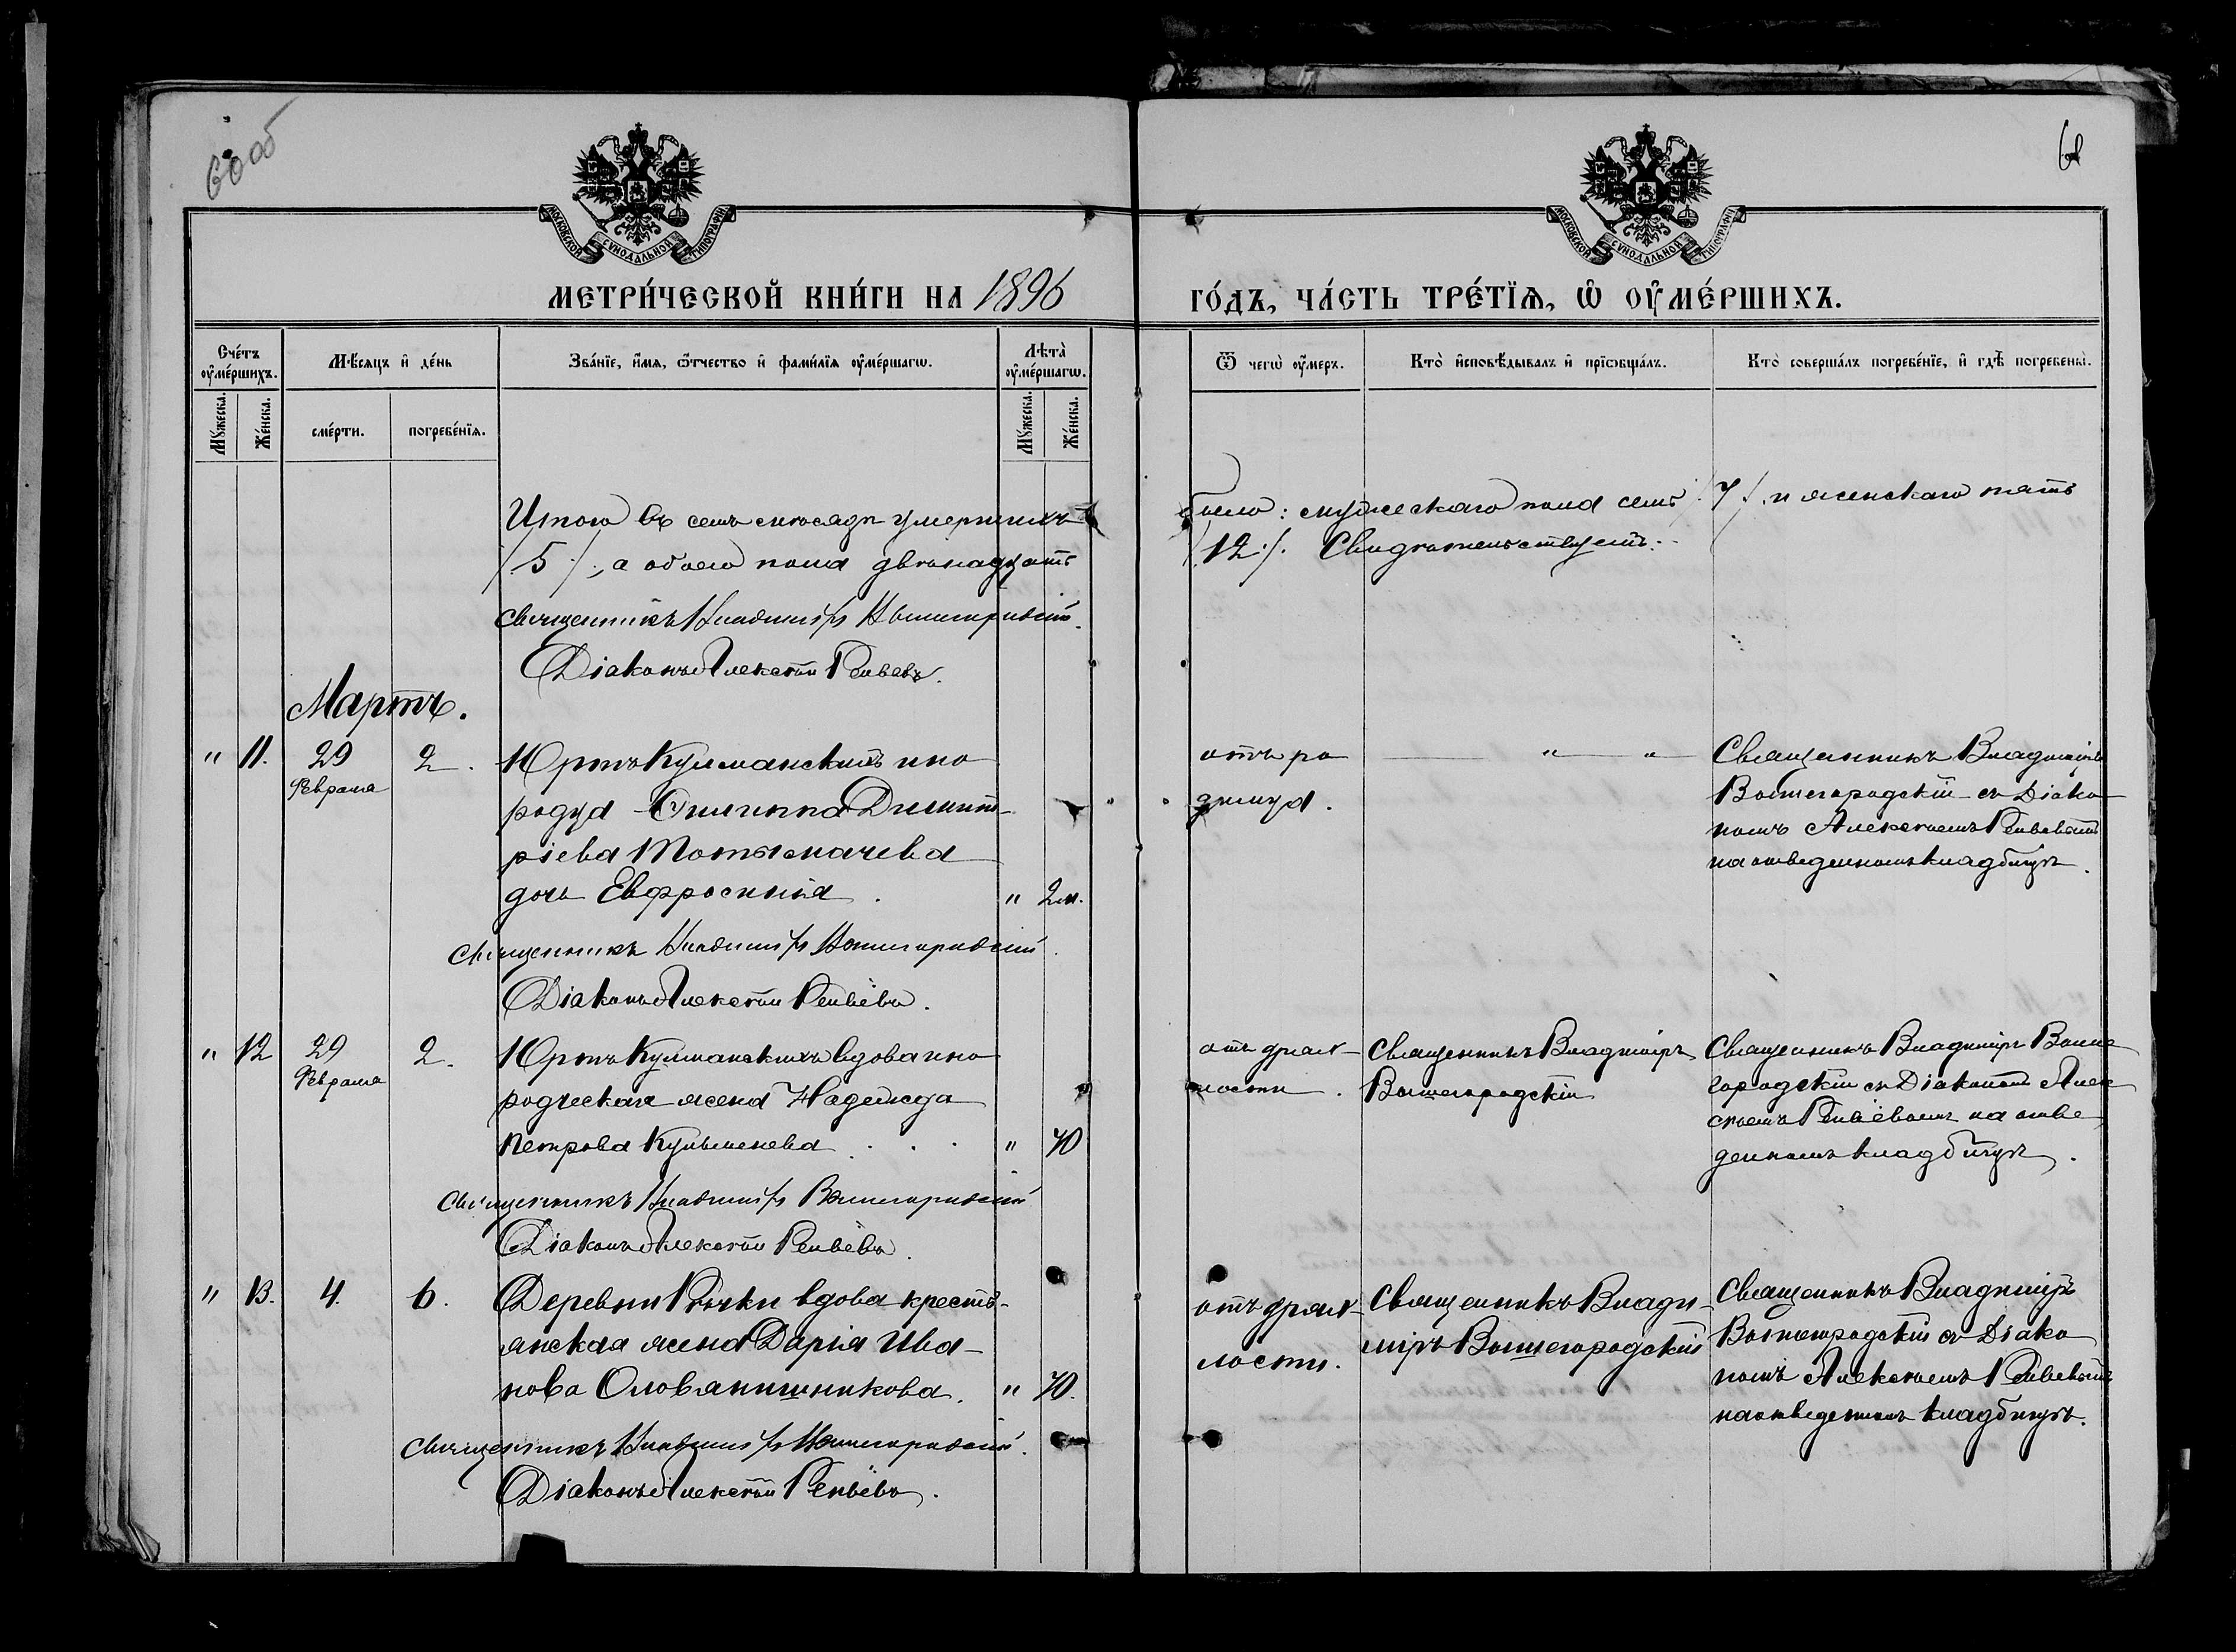 60 об
61
МОСКОВСКОЙ СѴНОДАЛЬНОЙ ТИПОГРАФІИ
МОСКОВСКОЙ СѴНОДАЛЬНОЙ ТИПОГРАФІИ
МЕТРИ́ЧЕСКОЙ КНИ́ГИ НА 1896
ГО́ДЪ, ЧА́СТЬ ТРЕ́ТЇѦ, Ѡ҆ ОУ҆МЕ́РШИХЪ.
Сче́тъ оу҆ме́ршихъ.
Мꙋ́жеска.
Же́нска.
Мѣ́сяцъ и҆ де́нь
сме́рти.
погребе́нїѧ.
Зва́нїе, и҆́мѧ, ѻ҆́тчество и҆ фами́лїѧ оу҆ме́ршагѡ.
Лѣта̀ оу҆ме́ршагѡ.
Мꙋ́жеска.
Же́нска.
Ѿ чегѡ̀ оу҆́меръ.
Кто̀ и҆сповѣ́дывалъ и҆ прїѡбща́лъ.
Кто̀ соверша́лъ погребе́нїе, и҆ гдѣ̀ погребены̀.
Итого въ семъ мѣсяцѣ умершихъ
было: мужескаго пола семь /7/. и женскаго пять
/5/, а обоего пола двѣнадцать
/12/. Свидѣтельствуетъ:
Священникъ Владиміръ Вышегородскій.
Діаконъ Алексѣй Репьевъ.
Мартъ.
" 11. 29 2. Юртъ Кулманскихъ ино
Февраля
родца Димит-
ріева Мотыскачева
дочь Евфросинія. " 2 м.
отъ ро
димца.
" "
Священникъ Владиміръ
Вышегородскій съ Діако
номъ Алексѣемъ Репьевымъ
на отведенномъ кладбищѣ.
Священникъ Владиміръ Вышегородскій.
Діаконъ Алексѣй Репьёвъ.
" 12 29 2. Юртъ Кулманскихъ вдова ино
Февраля
родческая жена Надежда
Петрова Кульменева . . . " 70
отъ дрях-
лости.
Священникъ Владиміръ
Вышегородскій
Священникъ Владиміръ Выше
городскій съ Діакономъ Алек
сѣемъ Репьёвымъ на отве
денномъ кладбищѣ.
Священникъ Владиміръ Вышегородскій
Діаконъ Алексѣй Репьёвъ.
" 13. 4. 6. Деревни Рѣчки вдова кресть-
янская жена Дарія Ива-
нова Оловянишникова. " 70.
отъ дрях-
лости.
Священникъ Влади-
міръ Вышегородскій
Священникъ Владиміръ
Вышегородскій съ Діако
номъ Алексѣемъ Репьевымъ
на отведенномъ кладбищѣ.
Священникъ Владиміръ Вышегородскій.
Діаконъ Алексѣй Репьёвъ.